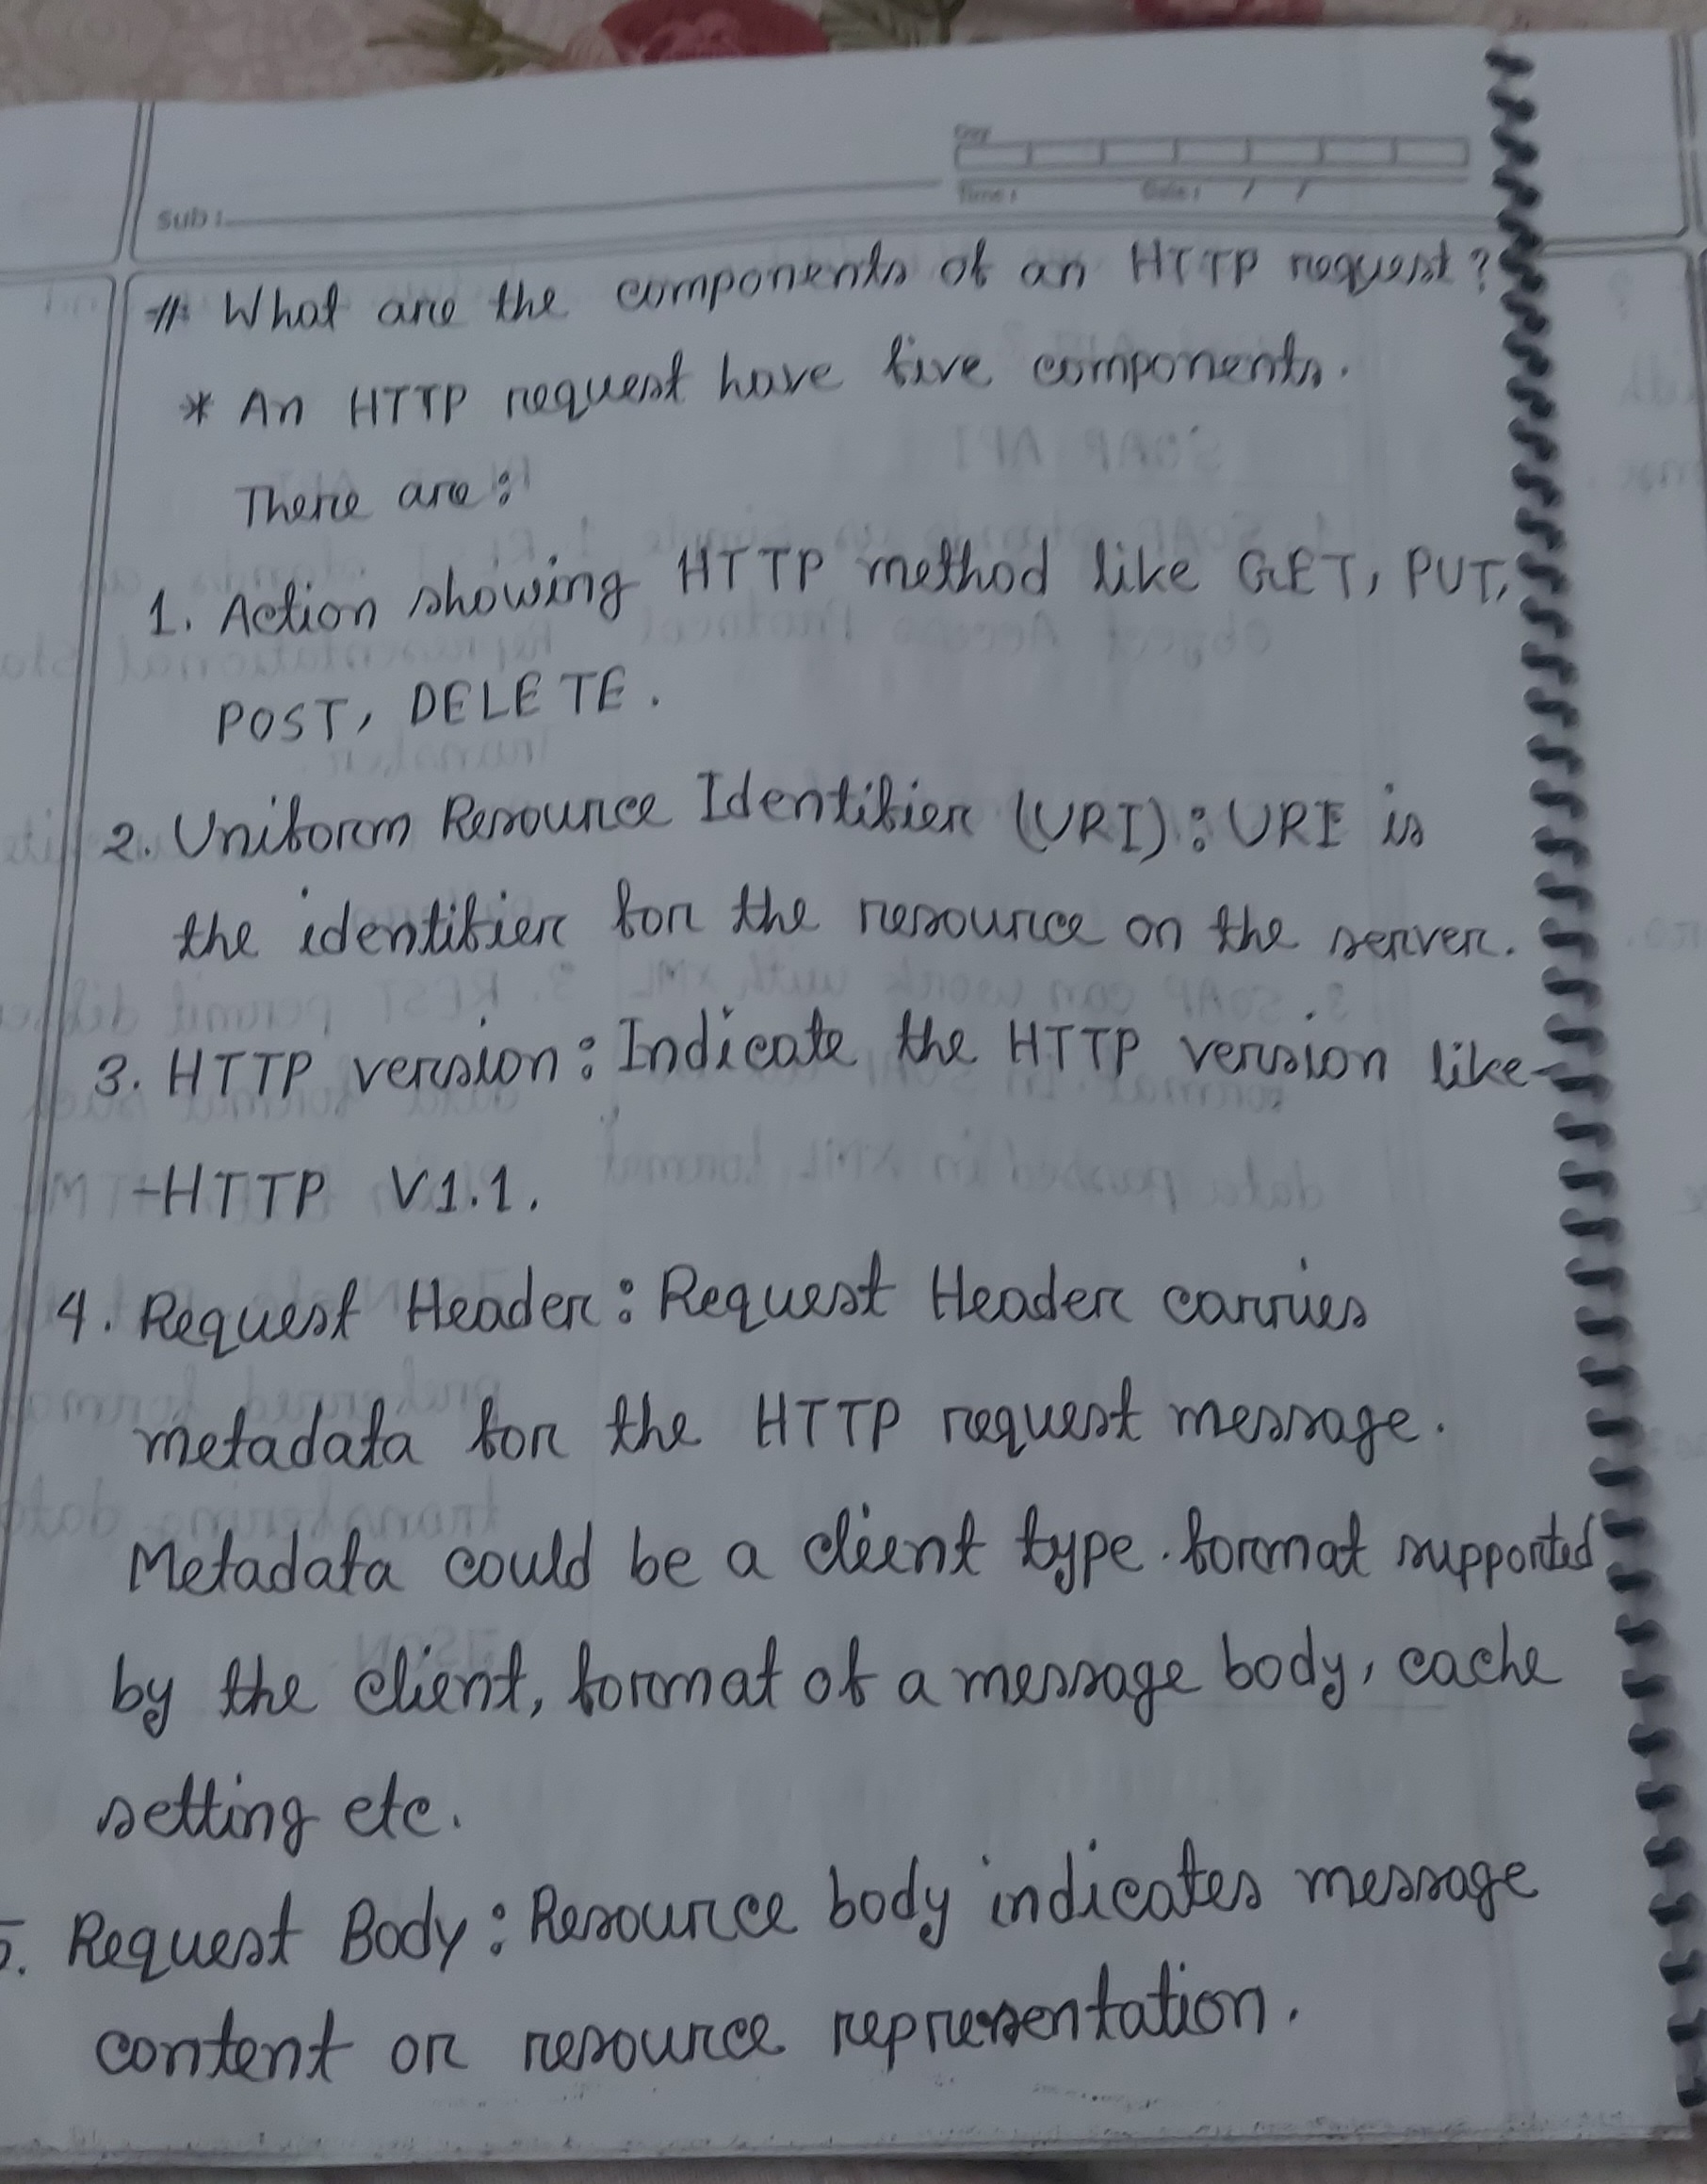 Sub :
Day
Time : Date : / /
# What are the components of an HTTP request?
* An HTTP request have five components.
There are:
1. Action showing HTTP method like GET, PUT,
POST, DELETE.
2. Uniform Resource Identifier (URI): URI is
the identifier for the resource on the server.
3. HTTP version: Indicate the HTTP version like-
-HTTP V1.1.
4. Request Header: Request Header carries
metadata for the HTTP request message.
Metadata could be a client type. format supported
by the client, format of a message body, cache
setting etc.
5. Request Body: Resource body indicates message
content or resource representation.